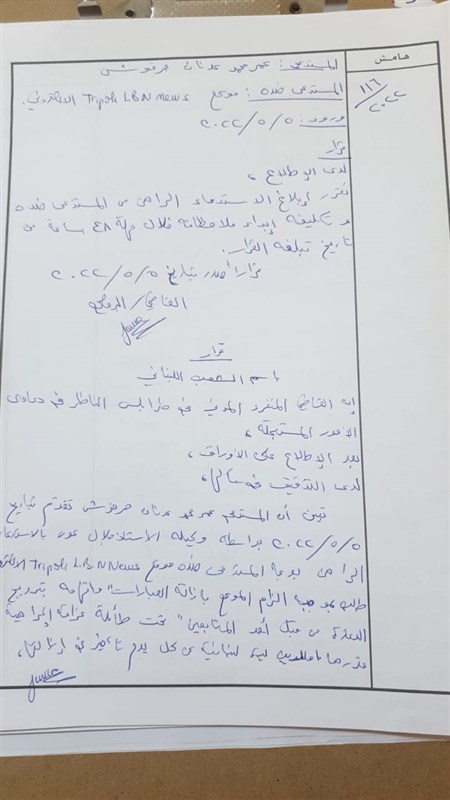 هامش
١١٦
٢٠٢٢
المستدعي: عمر محمد عدنان حرفوش
المستدعى ضده: موقع Tripoli LBN News الالكتروني.
ورود: ٢٠٢٢/٥/٥
قرار
لدى الإطلاع،
نقرر إبلاغ الاستدعاء الراهن من المستدعى ضده
و تكليفه إبداء ملاحظاته خلال مهلة ٤٨ ساعة من
تاريخ تبلغه القرار.
قراراً صدر بتاريخ ٢٠٢٢/٥/٥
القاضي /
قرار
باسم الشعب اللبناني
إن القاضي المنفرد المدني في طرابلس الناظر في دعاوى
الأمور المستعجلة،
بعد الإطلاع على الأوراق،
لدى التدقيق
تبين أن المستدعي عمر محمد عدنان حرفوش تقدم بتاريخ
٢٠٢٢/٥/٥ بواسطة وكيله الأستاذ بالاستدعاء
الراهن بوجه المستدعى ضده موقع Tripoli L.B.N News الالكتروني
طلب بموجبه الزام الموقع بإزالة العبارات
من قبل أحد المتابعين" تحت طائلة غرامة إكراهية
قدرها ليرة لبنانية عن كل يوم تأخير في إزالتها،